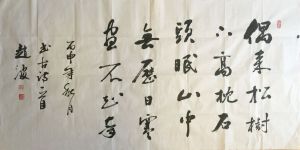 偶來松樹
下高枕石
頭眠山中
無歷日寒
盡不知年
丙申年秋月
書古詩一首